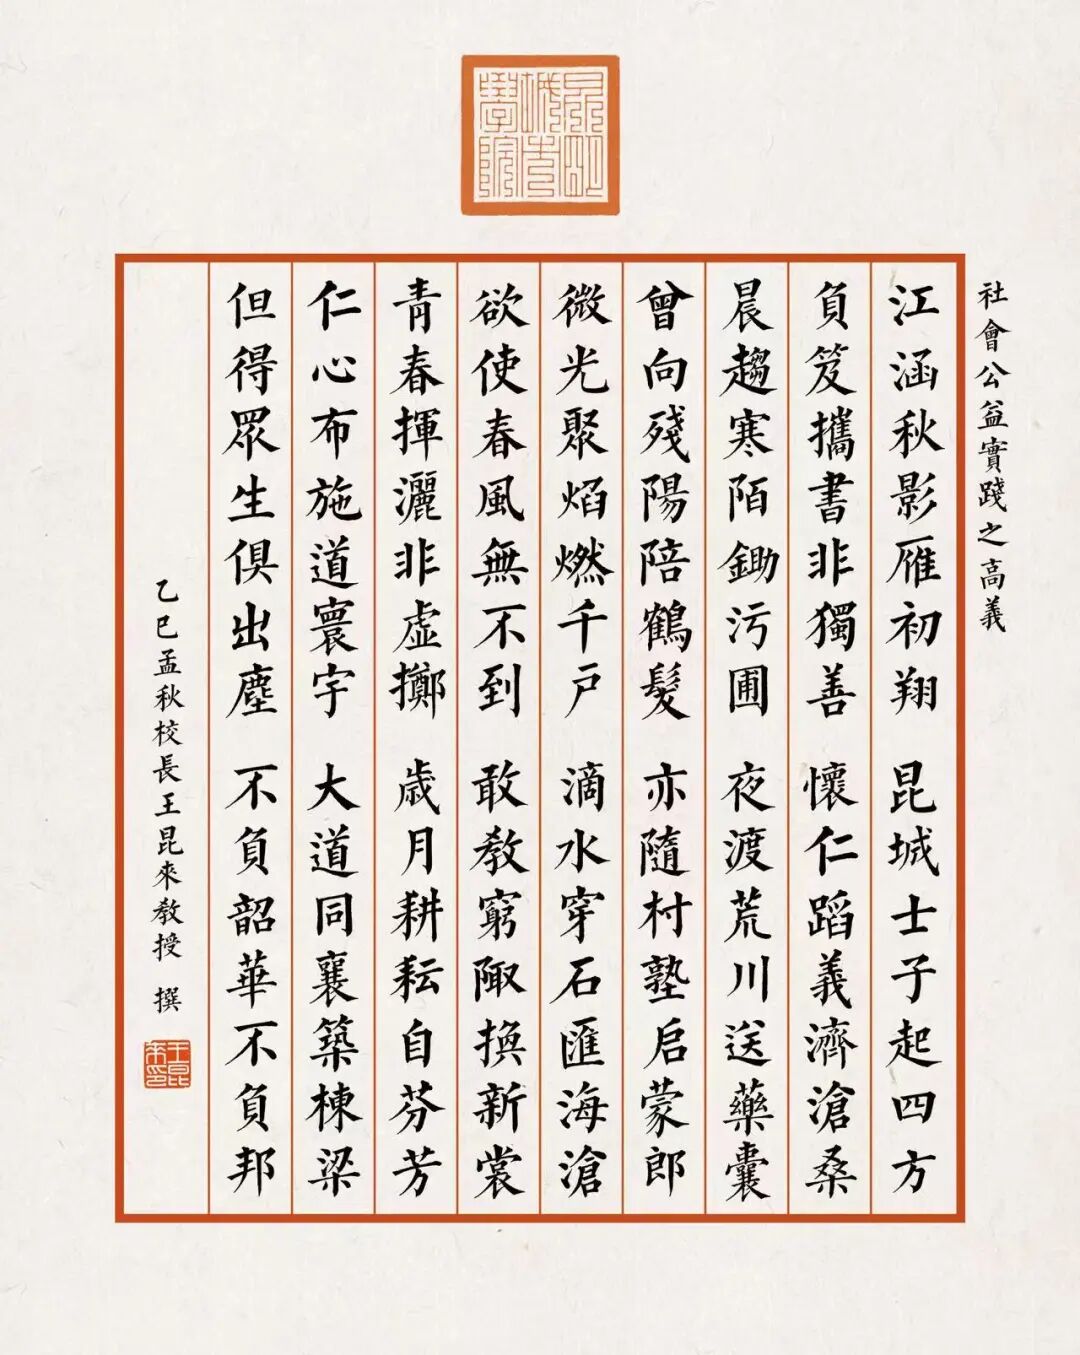 社會公益實踐之高義
江涵秋影雁初翔 昆城士子起四方
負笈攜書非獨善 懷仁蹈義濟滄桑
晨趨寒陌鋤污圃 夜渡荒川送藥囊
曾向殘陽陪鶴髮 亦隨村塾启蒙郎
微光聚焰燃千戶 滴水穿石匯海滄
欲使春風無不到 敢教窮陬換新裳
青春揮灑非虛擲 歲月耕耘自芬芳
仁心布施道寰宇 大道同襄築棟梁
但得眾生俱出塵 不負韶華不負邦
乙巳孟秋校長王昆來教授 撰
王昆來印